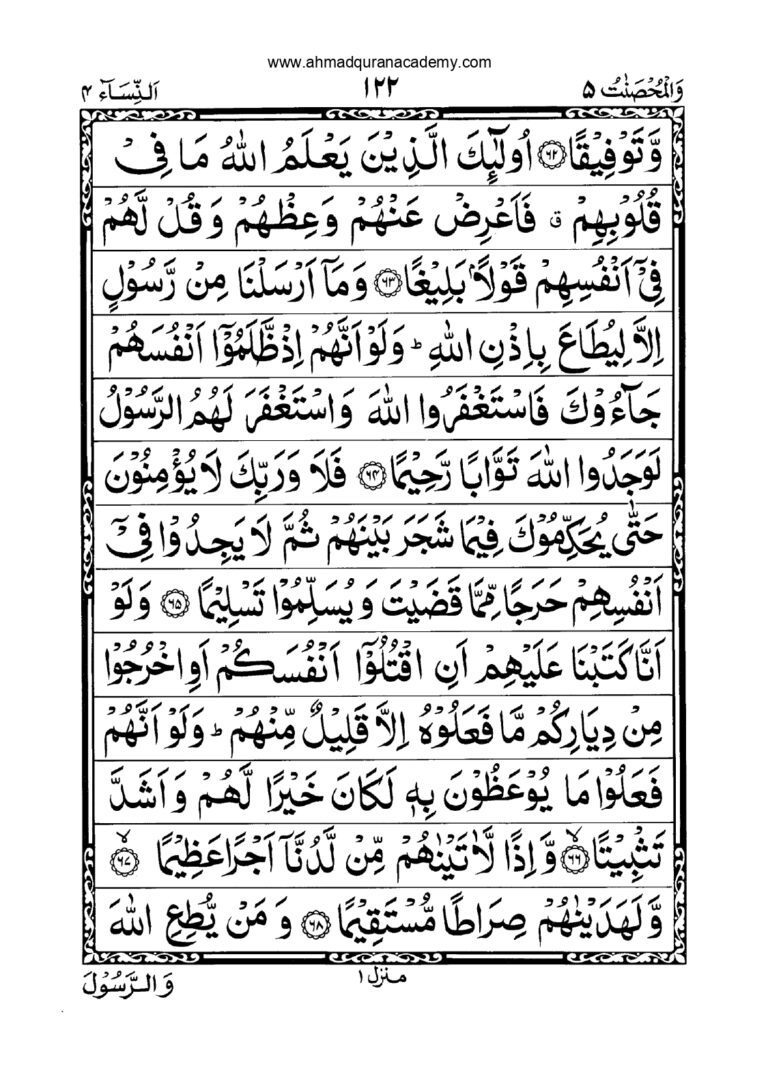 www.ahmadquranacademy.com
وَالْمُحْصَنٰتُ ۵
۱۲۲
اَلنِّسَآء ۴
وَّتَوْفِيْقًا ﴿۶۲﴾ اُولٰٓئِكَ الَّذِيْنَ يَعْلَمُ اللّٰهُ مَا فِىْ
قُلُوْبِهِمْ ۗ فَاَعْرِضْ عَنْهُمْ وَعِظْهُمْ وَقُلْ لَّهُمْ
فِىْٓ اَنْفُسِهِمْ قَوْلًاۢ بَلِيْغًا ﴿۶۳﴾ وَمَآ اَرْسَلْنَا مِنْ رَّسُوْلٍ
اِلَّا لِيُطَاعَ بِاِذْنِ اللّٰهِ ؕ وَلَوْ اَنَّهُمْ اِذْ ظَّلَمُوْٓا اَنْفُسَهُمْ
جَآءُوْكَ فَاسْتَغْفَرُوا اللّٰهَ وَاسْتَغْفَرَ لَهُمُ الرَّسُوْلُ
لَوَجَدُوا اللّٰهَ تَوَّابًا رَّحِيْمًا ﴿۶۴﴾ فَلَا وَرَبِّكَ لَا يُؤْمِنُوْنَ
حَتّٰى يُحَكِّمُوْكَ فِيْمَا شَجَرَ بَيْنَهُمْ ثُمَّ لَا يَجِدُوْا فِىْٓ
اَنْفُسِهِمْ حَرَجًا مِّمَّا قَضَيْتَ وَيُسَلِّمُوْا تَسْلِيْمًا ﴿۶۵﴾ وَلَوْ
اَنَّا كَتَبْنَا عَلَيْهِمْ اَنِ اقْتُلُوْٓا اَنْفُسَكُمْ اَوِ اخْرُجُوْا
مِنْ دِيَارِكُمْ مَّا فَعَلُوْهُ اِلَّا قَلِيْلٌ مِّنْهُمْ ؕ وَلَوْ اَنَّهُمْ
فَعَلُوْا مَا يُوْعَظُوْنَ بِهٖ لَكَانَ خَيْرًا لَّهُمْ وَاَشَدَّ
تَثْبِيْتًا ﴿۶۶﴾ ۙ وَّاِذًا لَّاٰتَيْنٰهُمْ مِّنْ لَّدُنَّآ اَجْرًا عَظِيْمًا ﴿۶۷﴾ ۙ
وَّلَهَدَيْنٰهُمْ صِرَاطًا مُّسْتَقِيْمًا ﴿۶۸﴾ وَمَنْ يُّطِعِ اللّٰهَ
منزل ۱
وَالرَّسُوْلَ